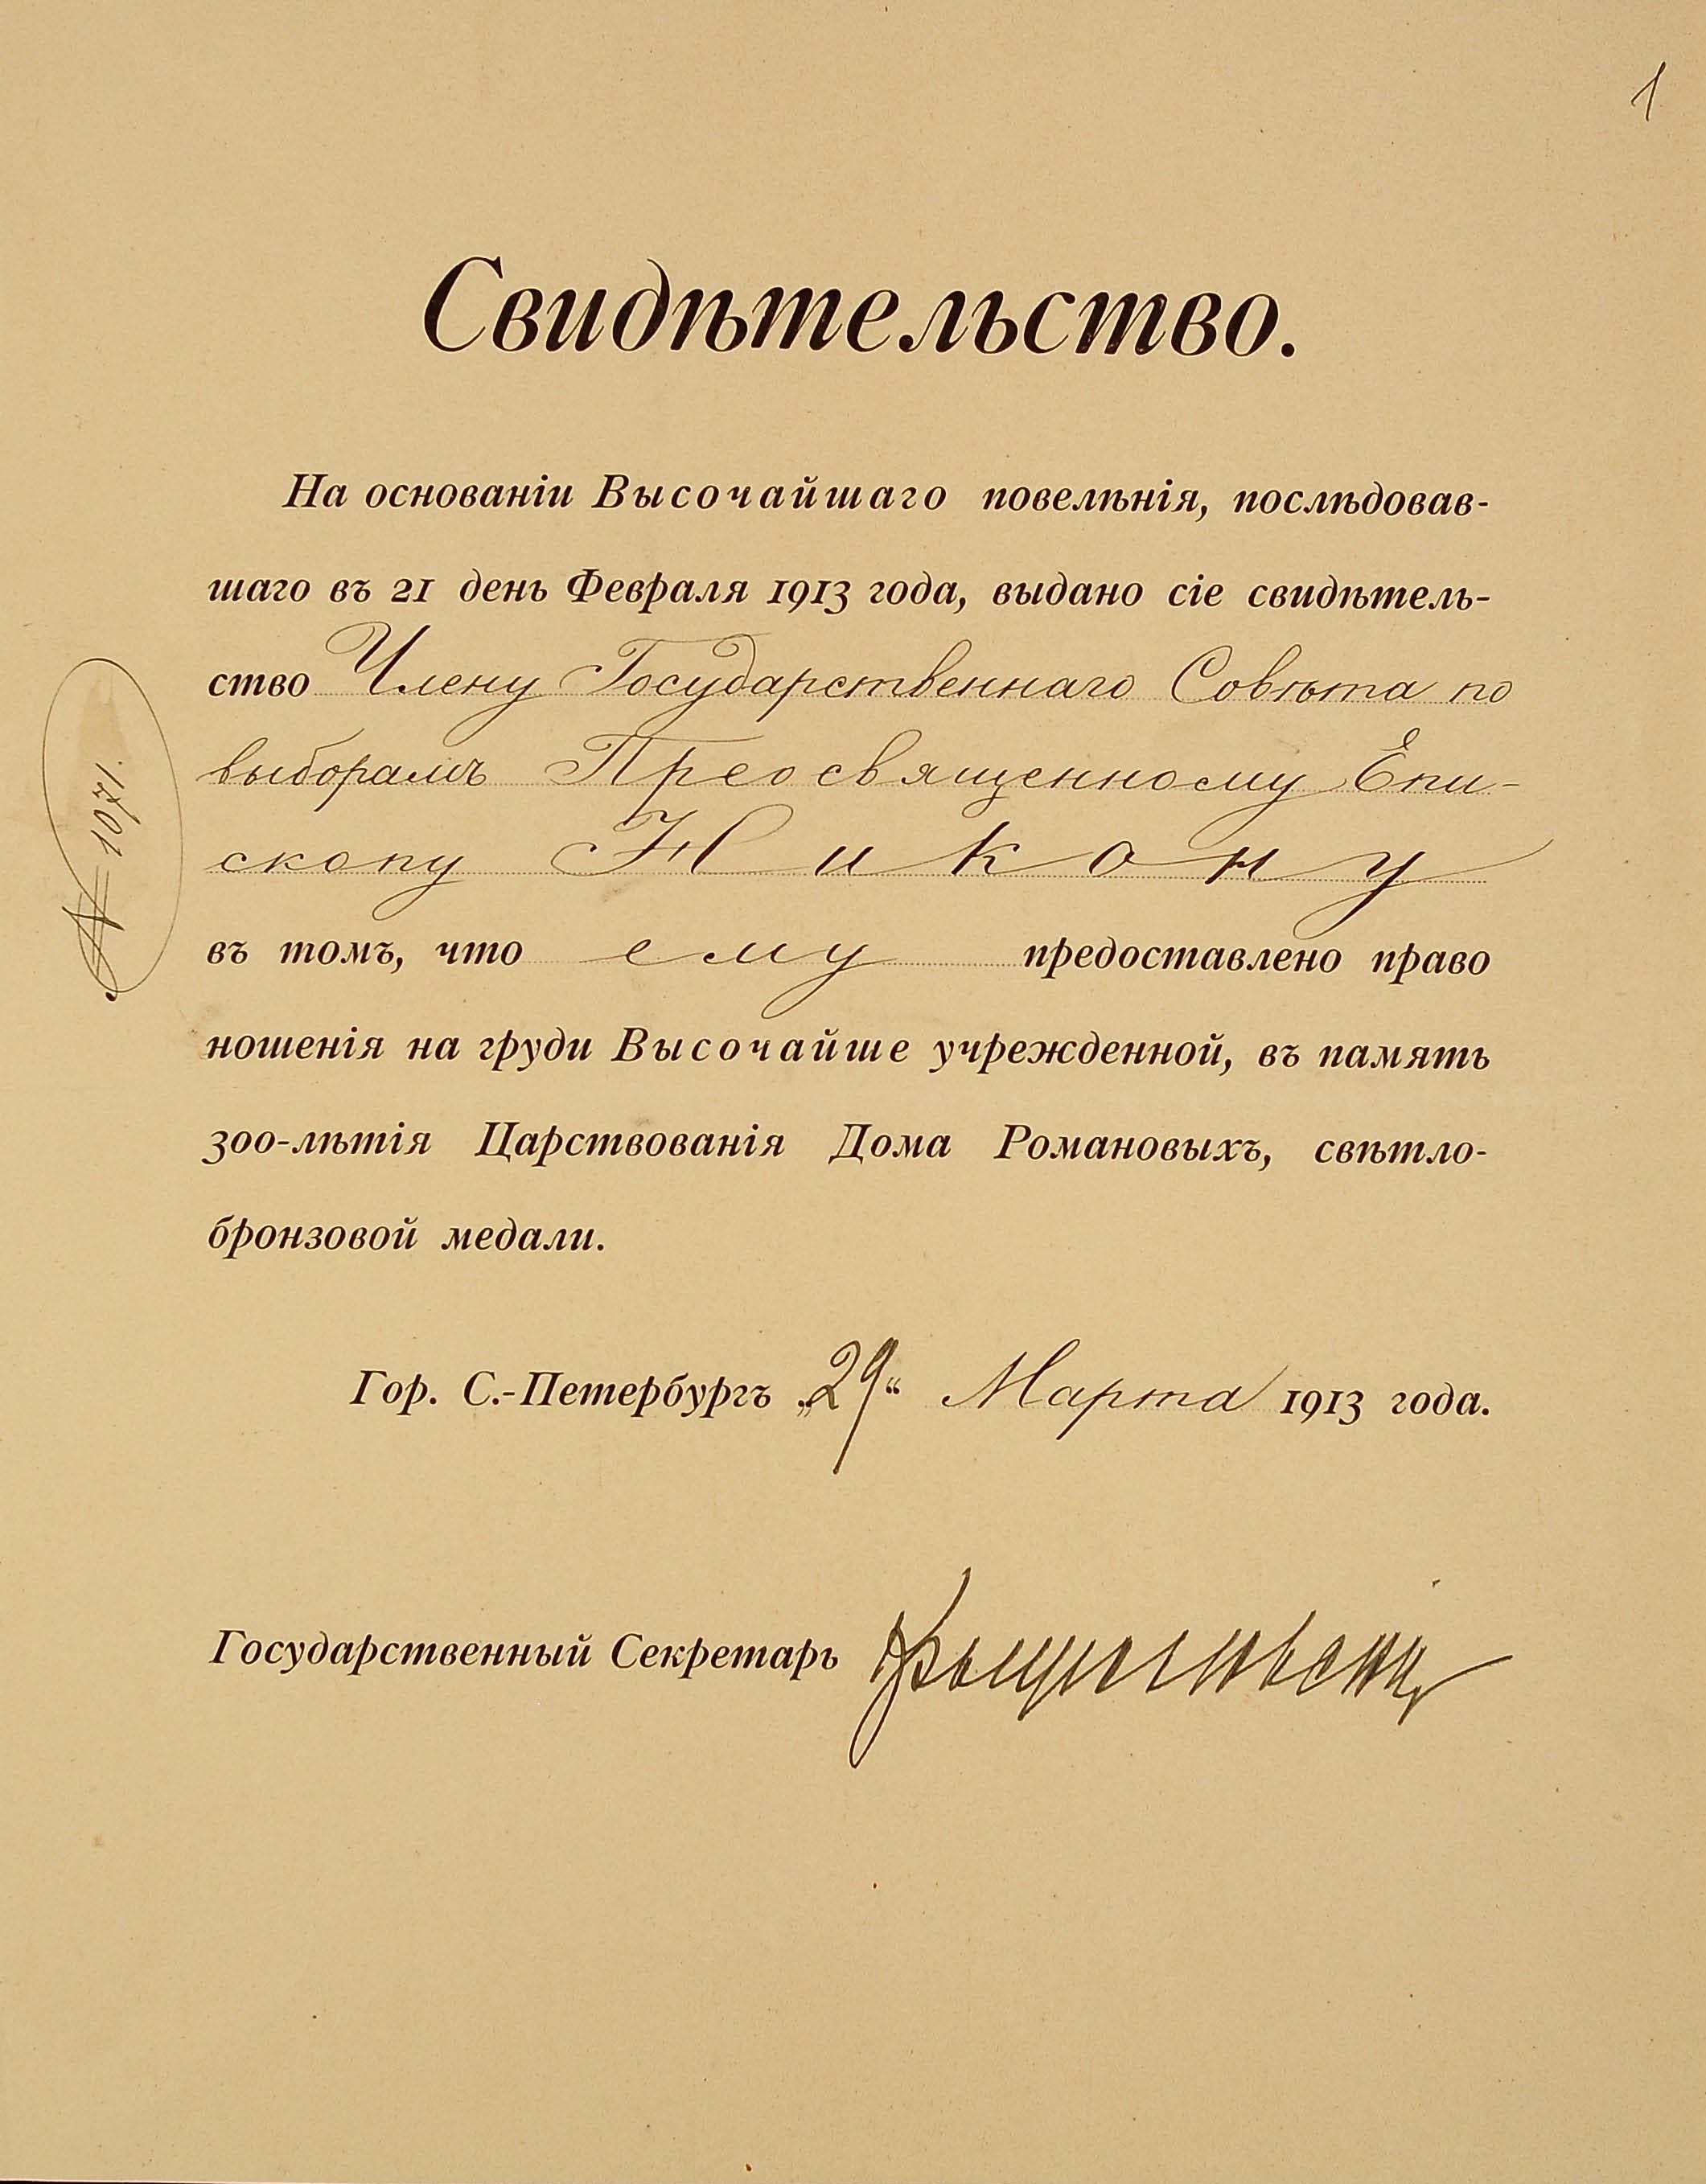 1
Свидѣтельство.
На основаніи Высочайшаго повелѣнія, послѣдовав-
шаго въ 21 день Февраля 1913 года, выдано сіе свидѣтель-
ство Члену Государственнаго Совѣта по
выборамъ Преосвященному Епи-
скопу Никону
въ томъ, что ему предоставлено право
ношенія на груди Высочайше учрежденной, въ память
300-лѣтія Царствованія Дома Романовыхъ, свѣтло-
бронзовой медали.
Гор. С.-Петербургъ „29“ Марта 1913 года.
Государственный Секретарь
№ 1071.